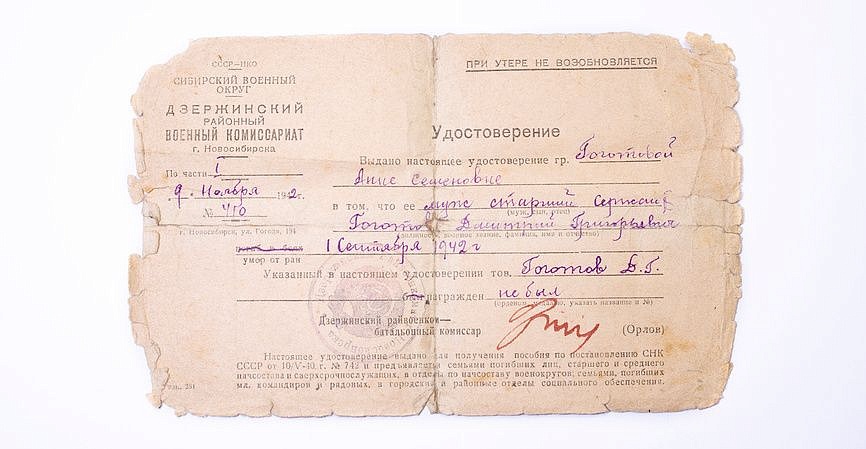 СССР—НКО
СИБИРСКИЙ ВОЕННЫЙ
ОКРУГ
ДЗЕРЖИНСКИЙ
РАЙОННЫЙ
ВОЕННЫЙ КОМИССАРИАТ
г. Новосибирска
По части I
9. Ноября 1942г.
№ 410
г. Новосибирск, ул. Гоголя, 194
ПРИ УТЕРЕ НЕ ВОЗОБНОВЛЯЕТСЯ
Удостоверение
Выдано настоящее удостоверение гр. Гоготовой
Анне Семеновне
в том, что ее муж старший Сержант
(муж, сын, отец)
Гоготов Дмитрий Григорьевич
(должность, военное звание, фамилия, имя и отчество)
погиб в боях 1 Сентября 1942 г
умер от ран
Указанный в настоящем удостоверении тов. Гоготов Д.Г.
награжден не был
(орденом, медалью, указать название и №)
Дзержинский райвоенком—
батальонный комиссар (Орлов)
Настоящее удостоверение выдано для получения пособия по постановлению СНК
СССР от 10/V-40 г. № 742 и предъявляется семьями погибших лиц, старшего и среднего
начсостава и сверхсрочнослужащих, в отделы по начсоставу военокругов; семьями, погибших
мл. командиров и рядовых, в городские и районные отделы социального обеспечения.
251